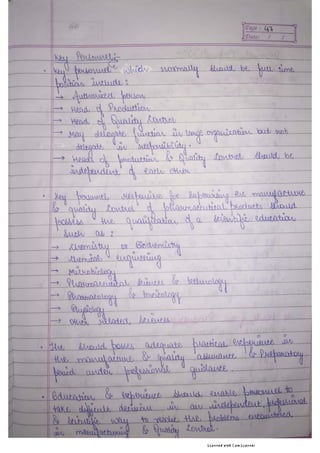 Page: 47
Date: / /
Key Personnel:-
• Key personnel which normally should be full time
position include:
→ Authorized person
→ Head of Production
→ Head of Quality Control
→ May delegate function in large organization but not
delegate in responsibility.
→ Heads of production & Quality Control should be
independent of each other
• Key personnel responsible for supervising the manufacture
& quality control of pharmaceutical products should
possess the qualification of a scientific education
such as:
→ Chemistry or Biochemistry
→ Chemical engineering
→ Microbiology
→ Pharmaceutical sciences & technology
→ Pharmacology & toxicology
→ Physiology
→ Other related sciences
• The should posses adequate practical experience in
the manufacture & quality assurance & Preparatory
period under professional guidance.
• Education & experience should enable personnel to
take difficult decisions in an independent, professional
& scientific way to resolve the problems encountered
in manufacturing & Quality Control.
Scanned with CamScanner